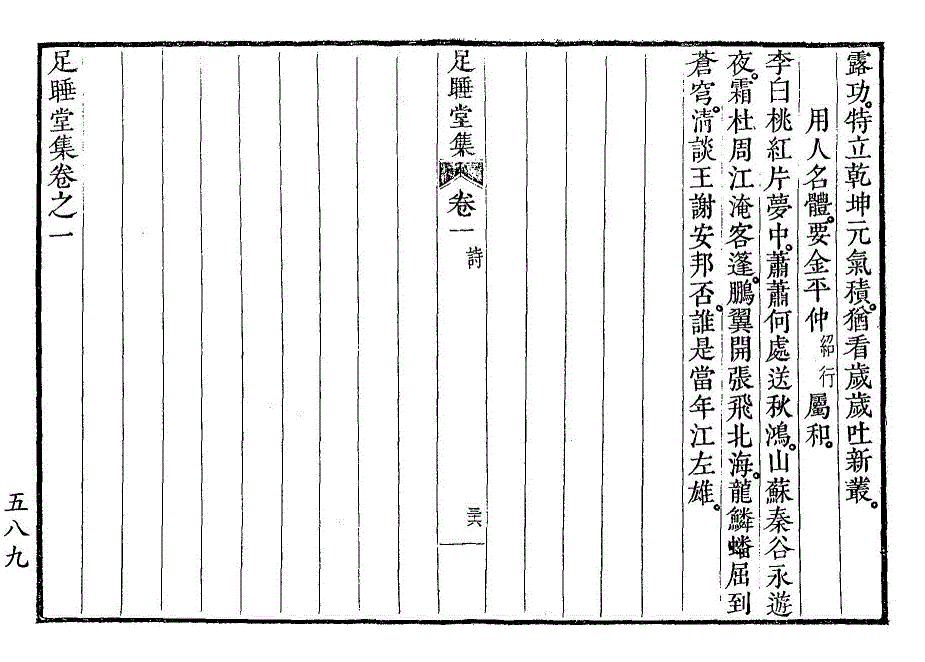 露功。特立乾坤元氣積。猶看歲歲吐新叢。
用人名體。要金平仲紹行屬和。
李白桃紅片夢中。蕭蕭何處送秋鴻。山蘇秦谷永遊
夜。霜杜周江淹客蓬。鵬翼開張飛北海。龍鱗蟠屈到
蒼穹。淸談王謝安邦否。誰是當年江左雄。
足睡堂集 卷一 詩 三六
足睡堂集卷之一
五八九